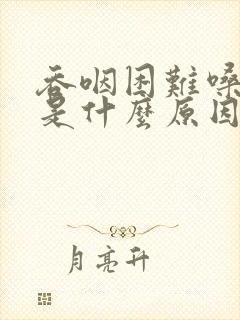 吞咽困難嗓
是什麼原因
月亮升